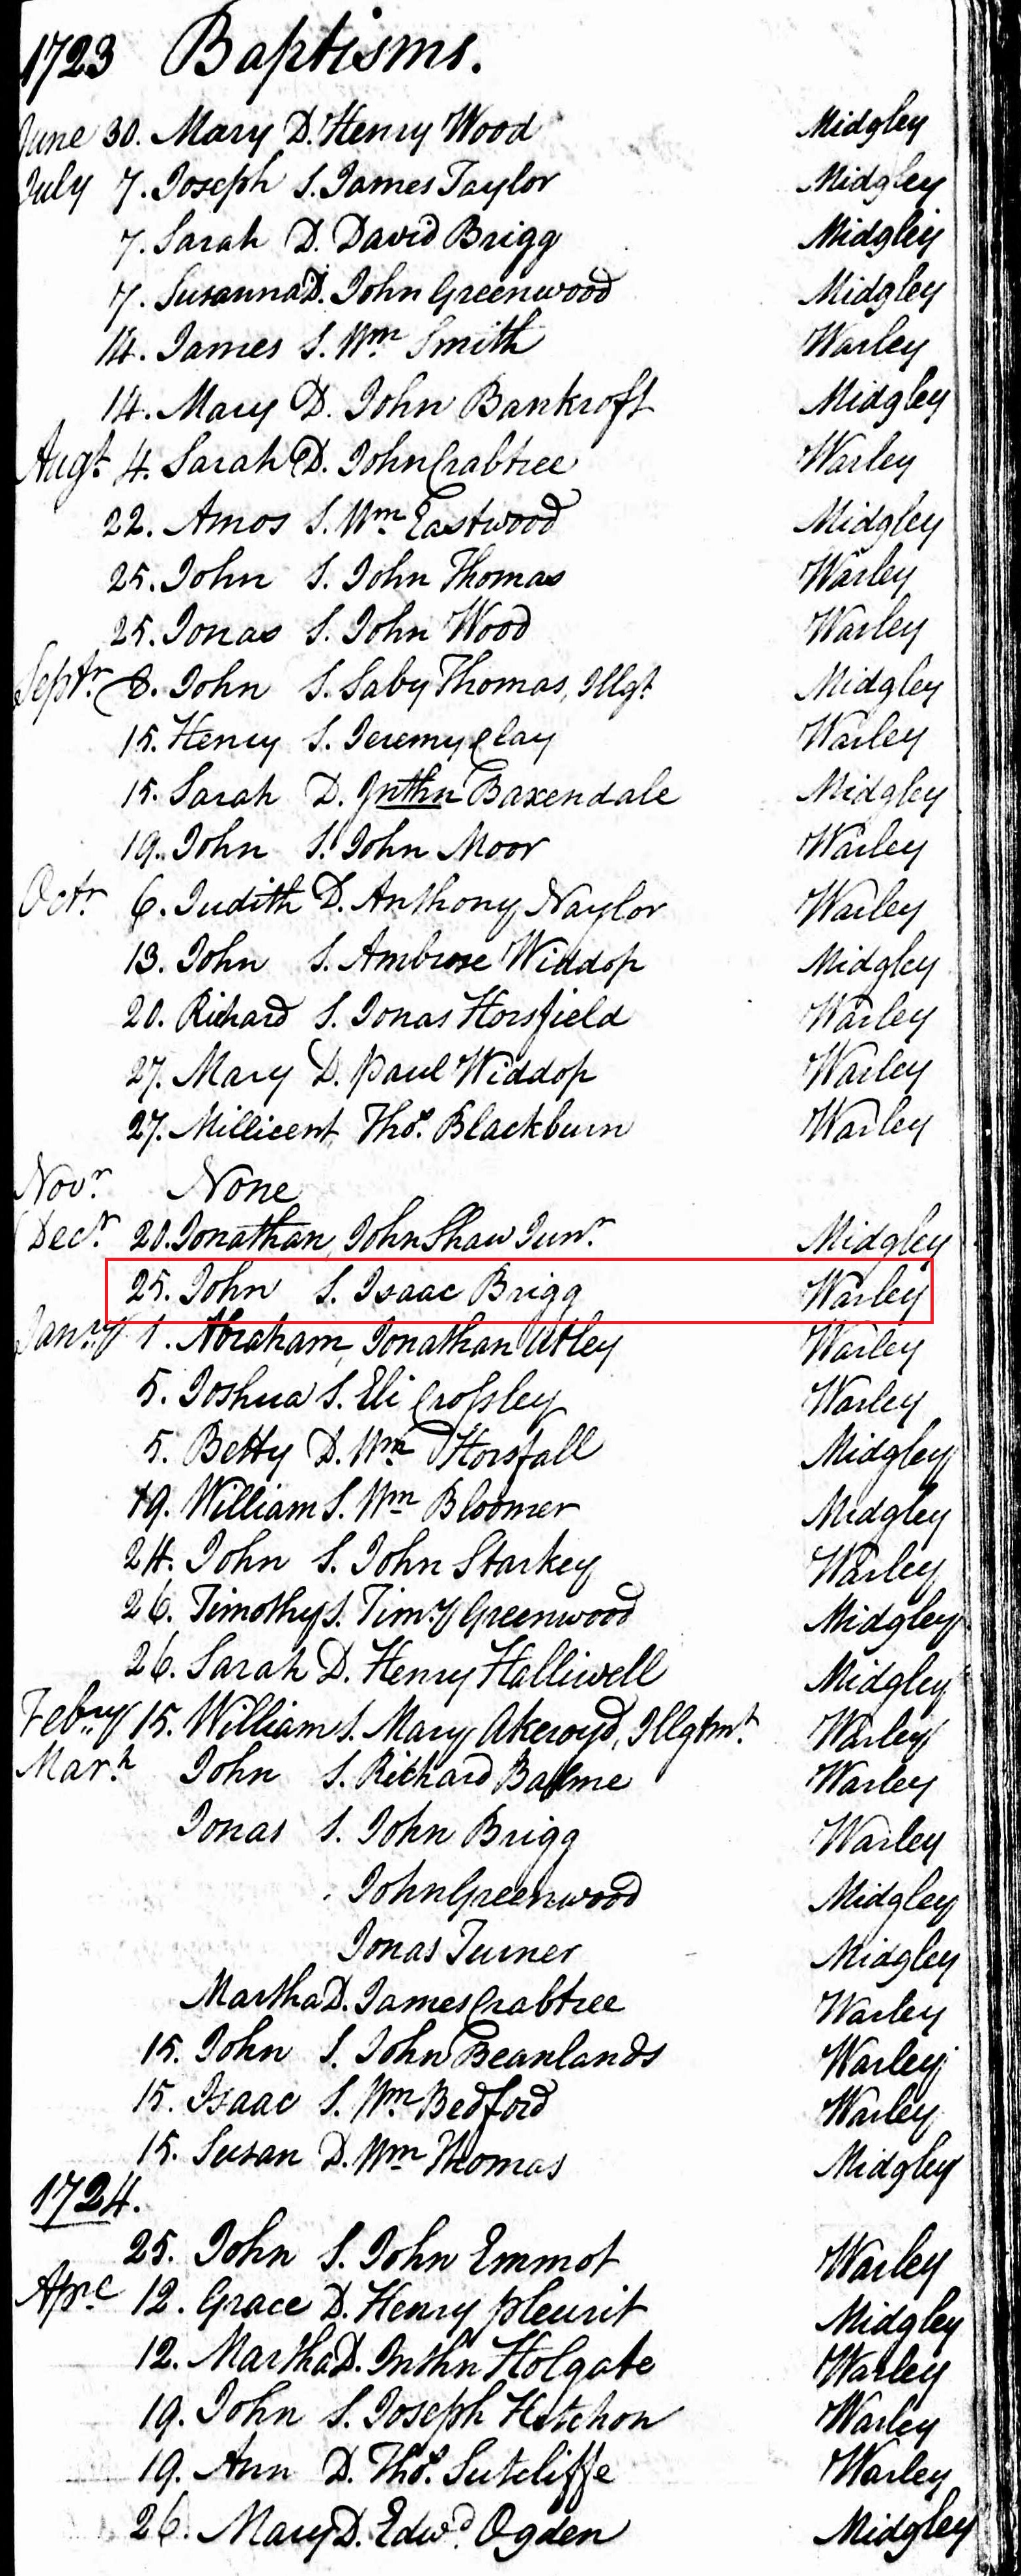 1723 Baptisms.
June 30. Mary D. Henry Wood Midgley
July 7. Joseph S. James Taylor Midgley
7. Sarah D. David Brigg Midgley
7. Susanna D. John Greenwood Midgley
14. James S. Wm Smith Warley
14. Mary D. John Bankroft Midgley
Augt 4. Sarah D. John Crabtree Warley
22. Amos S. Wm Eastwood Midgley
25. John S. John Thomas Warley
25. Jonas S. John Wood Warley
Septr. 8. John S. Saby Thomas, Illgt Midgley
15. Henry S. Jeremy Clay Warley
15. Sarah D. Jnthn Baxendale Midgley
19. John S. John Moor Warley
Octr. 6. Judith D. Anthony Naylor Warley
13. John S. Ambrose Widdop Midgley
20. Richard S. Jonas Horsfield Warley
27. Mary D. Paul Widdop Warley
27. Millicent Thos. Blackburn Warley
Novr. None
Decr. 20. Jonathan, John Shaw Junr. Midgley
25. John S. Isaac Brigg Warley
Janry 1. Abraham, Jonathan Utley Warley
5. Joshua S. Eli Crofsley Warley
5. Betty D. Wm Horsfall Midgley
19. William S. Wm Bloomer Midgley
24. John S. John Starkey Warley
26. Timothy S. Timy Greenwood Midgley
26. Sarah D. Henry Halliwell Midgley
Febry 15. William S. Mary Akeroyd, Illgtmt. Warley
Marh John S. Richard Warley
Jonas S. John Brigg Warley
John Greenwood Midgley
Jonas Turner Midgley
Martha D. James Crabtree Warley
15. John S. John Beanlands Warley
15. Isaac S. Wm Bedford Warley
15. Susan D. Wm Thomas Midgley
1724.
25. John S. John Emmot Warley
Aprl 12. Grace D. Henry Pleurit Midgley
12. Martha D. Jnthn Holgate Warley
19. John S. Joseph Hitchon Warley
19. Ann D. Thos. Sutcliffe Warley
26. Mary D. Edwd. Ogden Midgley